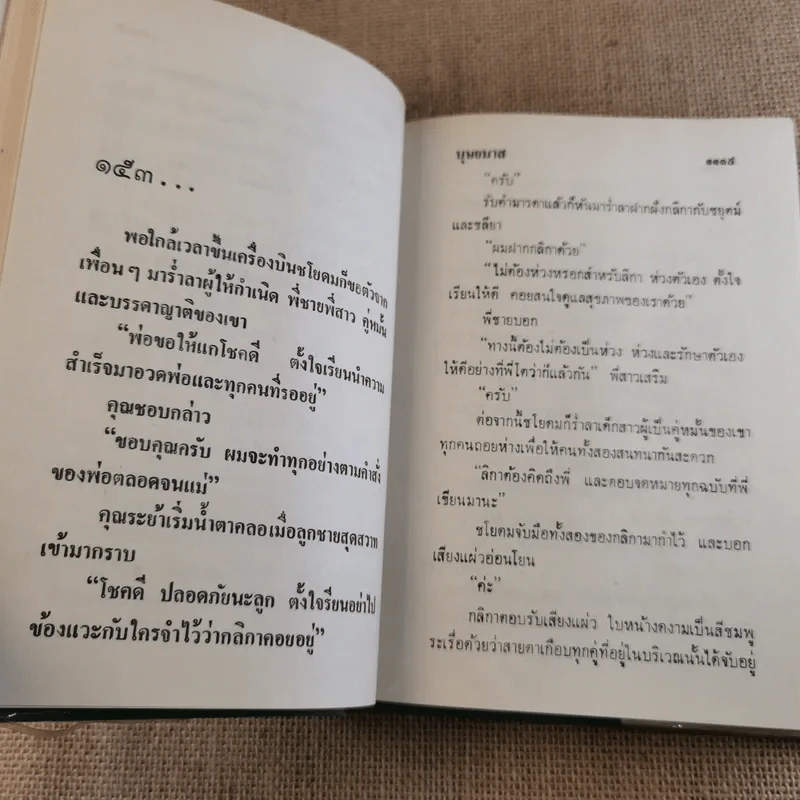 ๑๕๓...
พอใกล้เวลาขึ้นเครื่องบินชโยดมก็ขอตัวจาก
เพื่อนๆ มาร่ำลาผู้ให้กำเนิด พี่ชายพี่สาว คู่หมั้น
และบรรดาญาติของเขา
“พ่อขอให้แกโชคดี ตั้งใจเรียนนำความ
สำเร็จมาอวดพ่อและทุกคนที่รออยู่”
คุณชอบกล่าว
“ขอบคุณครับ ผมจะทำทุกอย่างตามคำสั่ง
ของพ่อตลอดจนแม่”
คุณระย้าเริ่มน้ำตาคลอเมื่อลูกชายสุดสวาท
เข้ามากราบ
“โชคดี ปลอดภัยนะลูก ตั้งใจเรียนอย่าไป
ข้องแวะกับใครจำไว้ว่ากลิกาคอยอยู่”
บุษยมาส
“ครับ”
รับคำมารดาแล้วก็หันมาร่ำลาฝากฝังกลิกากับชยุตม์
และชลียา
“ผมฝากกลิกาด้วย”
“ไม่ต้องห่วงหรอกสำหรับลิกา ห่วงตัวเอง ตั้งใจ
เรียนให้ดี คอยสนใจดูแลสุขภาพของเราด้วย”
พี่ชายบอก
“ทางนี้ต้องไม่ต้องเป็นห่วง ห่วงและรักษาตัวเอง
ให้ดีอย่างที่พี่โตว่าก็แล้วกัน” พี่สาวเสริม
“ครับ”
ต่อจากนี้ชโยดมก็ร่ำลาเด็กสาวผู้เป็นคู่หมั้นของเขา
ทุกคนถอยห่างเพื่อให้คนทั้งสองสนทนากันสะดวก
“ลิกาต้องคิดถึงพี่ และตอบจดหมายทุกฉบับที่พี่
เขียนมานะ”
ชโยดมจับมือทั้งสองของกลิกามากำไว้ และบอก
เสียงแผ่วอ่อนโยน
“ค่ะ”
กลิกาตอบรับเสียงแผ่ว ใบหน้างดงามเป็นสีชมพู
ระเรื่อด้วยว่าสายตาเกือบทุกคู่ที่อยู่ในบริเวณนั้นได้จับอยู่